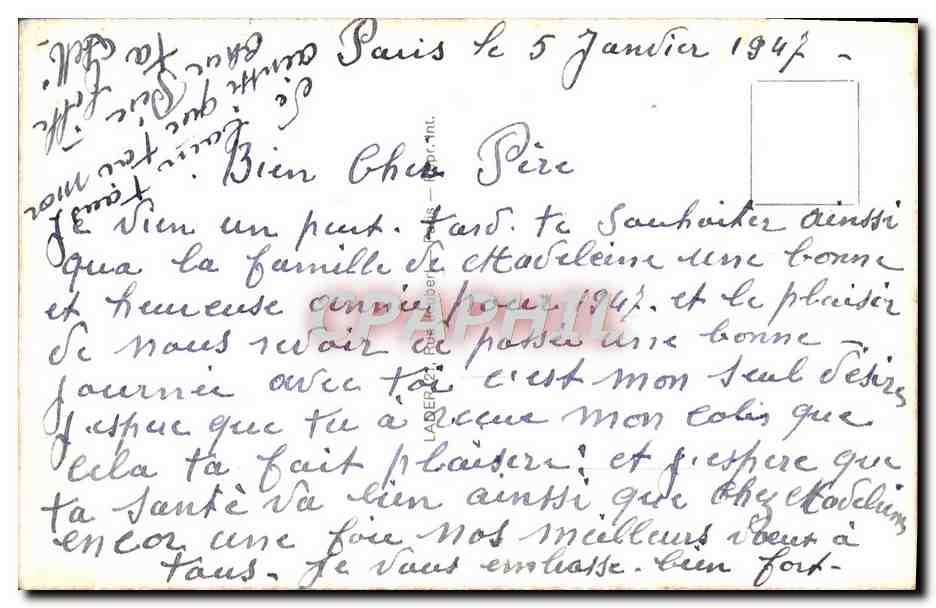 Paris le 5 Janvier 1947 -
Bien Cher Père
Je vien un peut. tard. te Souhaiter ainssi
qua la famille de Madeleine une bonne
et heureuse année pour 1947. et le plaisir
de nous revoir et passer une bonne -
journée avec toi c'est mon seul désire
j.espere que tu à recue mon colis que
cela ta fait plaisere: et j.espere que
ta Santè va bien ainssi que Chez Madeleine
encor une foie nos meilleurs voeux à
tous. Je vous embrasse. bien fort-
ainssi que
cher Père
ta
CPAPHIL
LADER, 21, Rue Paris — Impr. Int.